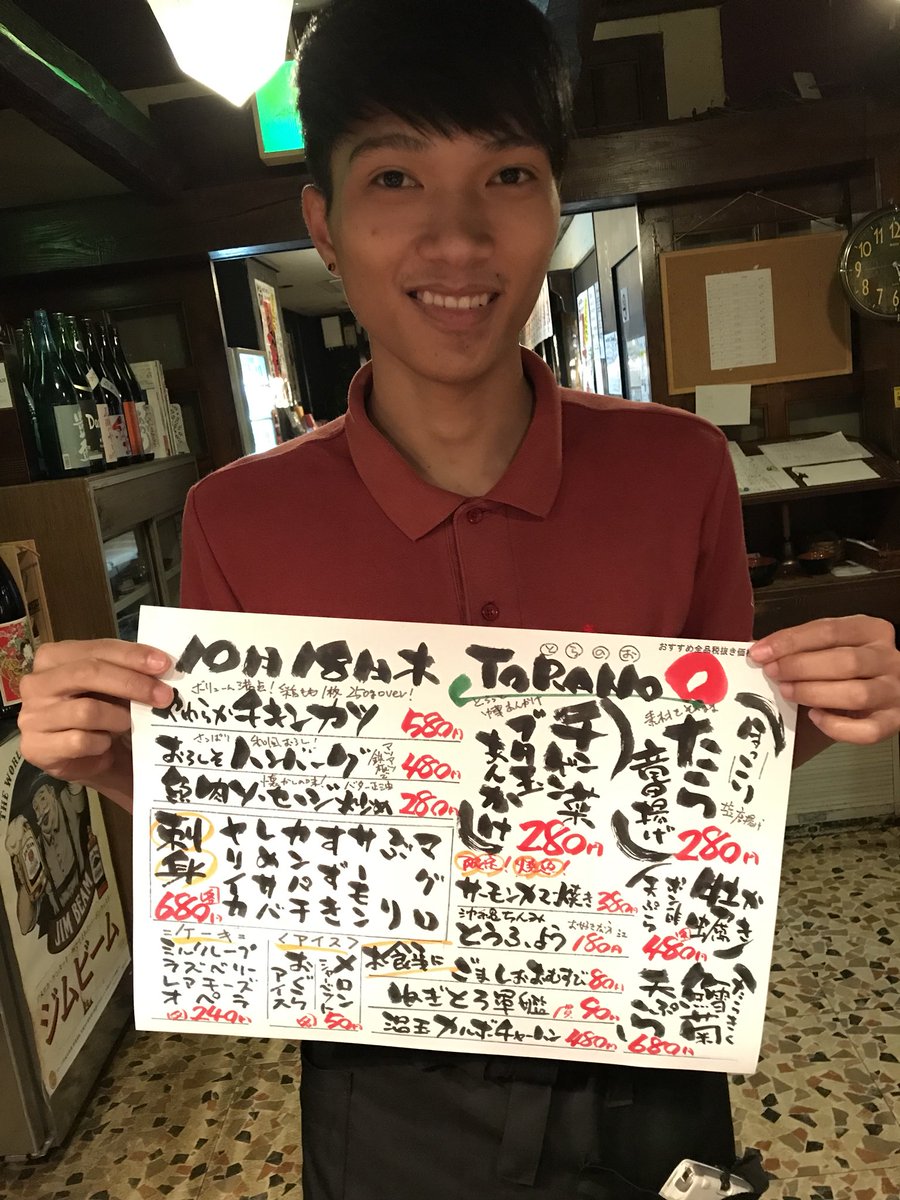 10月18日木
とらのお
TORANO
おすすめ全品税抜き価格
ボリューム満点!
1枚 250g over!
やわらかチキンカツ 580円
さっぱり 和風おろし!
おろしそハンバーグ 480円
懐かしの味! バター正油
魚肉ソーセージ炒め 280円
チンゲン菜
ブタ玉
あんかけ
280円
たら
竜田揚げ
280円
刺身
680円
マグロ
ぶり
サーモン
すずき
カンパチ
しめサバ
ヤリイカ
限定!
サーモンカマ焼き 380円
とうふよう 180円
かき
牡蠣
天ぷら
480円
白雪菊
天ぷら
680円
＝ケーキ＝
ミルクレープ
ラズベリー
レアチーズ
オペラ
240円
<アイス>
メロン
シャーベット
おぐら
アイス
50円
お食事に
ごましおおむすび 80円
ねぎとろ軍艦 90円
温玉カルボチャーハン 480円
THE WORLD
JIM BEAM
ジムビーム
10 11 12
9
8
7 6